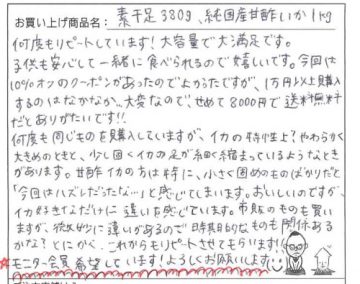 お買い上げ商品名: 素干足380g、純国産甘酢いか1kg
何度もリピートしています!大容量で大満足です。
子供も安心して一緒に食べられるので嬉しいです。今回は
10%オフのクーポンがあったのでよかったですが、1万円以上購入
するのはなかなか…大変なので、せめて8000円で送料無料
だとありがたいです!!
何度も同じものを購入していますが、イカの特性上?やわらかく
大きめのときと、少し固くイカの足が細く縮まっているようなとき
があります。甘酢イカの方は特に、小さく固めのものばかりだと
「今回はハズレだったな…」と感じてしまいます。おいしいのですが、
イカ好きなだけに違いを感じています。市販のものも買い
ますが、彼処に違いがあるので時期的なものも関係ある
かな?とにかく、これからもリピートさせてもらいます!
☆モニター会員希望しています!よろしくお願いします